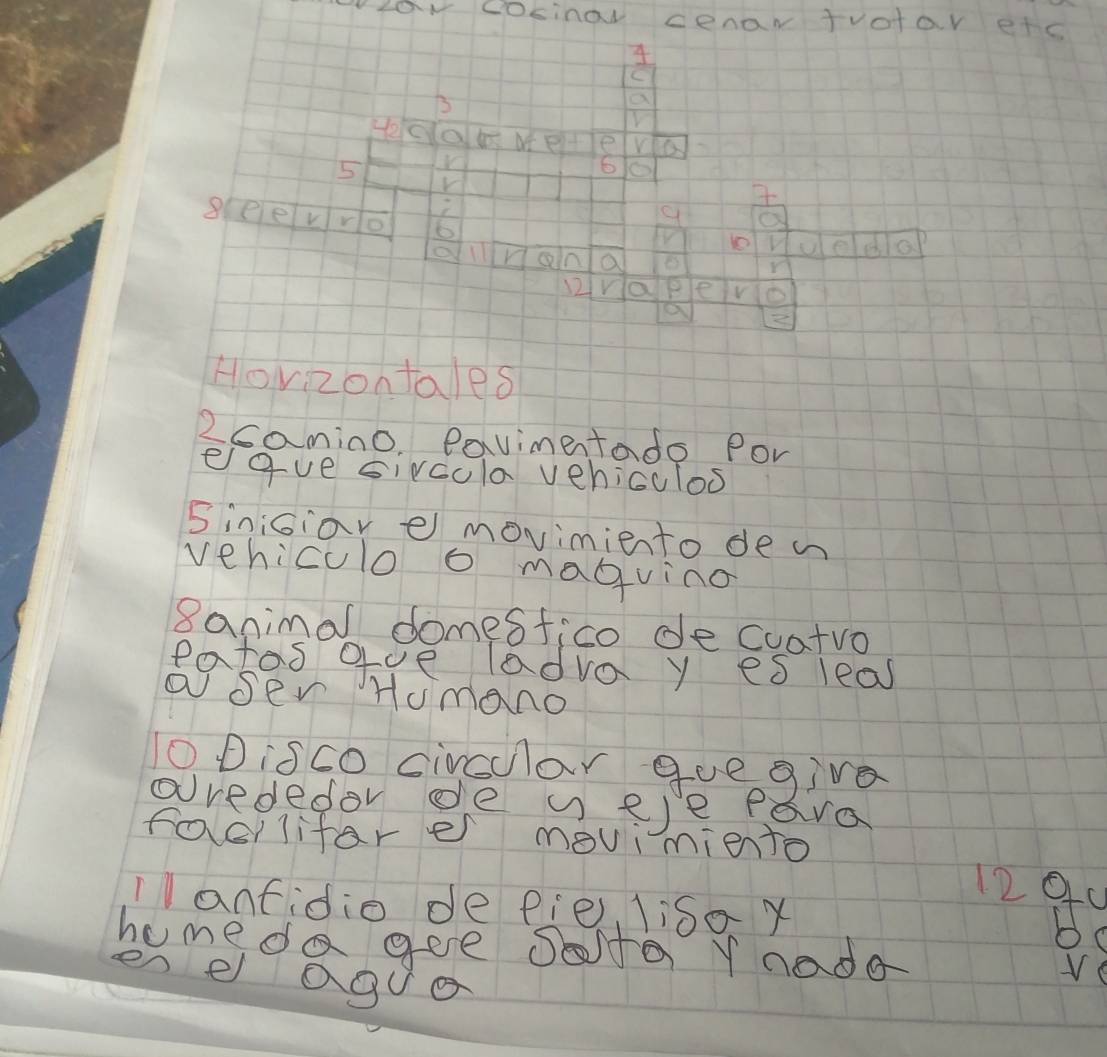 cosinar cenar trotar etc
1
c
a
3 r
42 carretera
6 o
5 r
r
i 9 7
8 perro b r a
a 11 rana o 10 rueda
r
12 ropero
a z
Horizontales
2 camino. pavimentado por
el que circula vehiculos
5 inisiar el movimiento de un
vehiculo o maquina
8 animal domestico de cuatro
patas que ladra y es leal
al ser Humano
10 Disco circular que gira
alrededor de un eje para
facilitar el movimiento
11 anfidio de piel lisa y
humeda que salta y nada
en el agua
12 qu